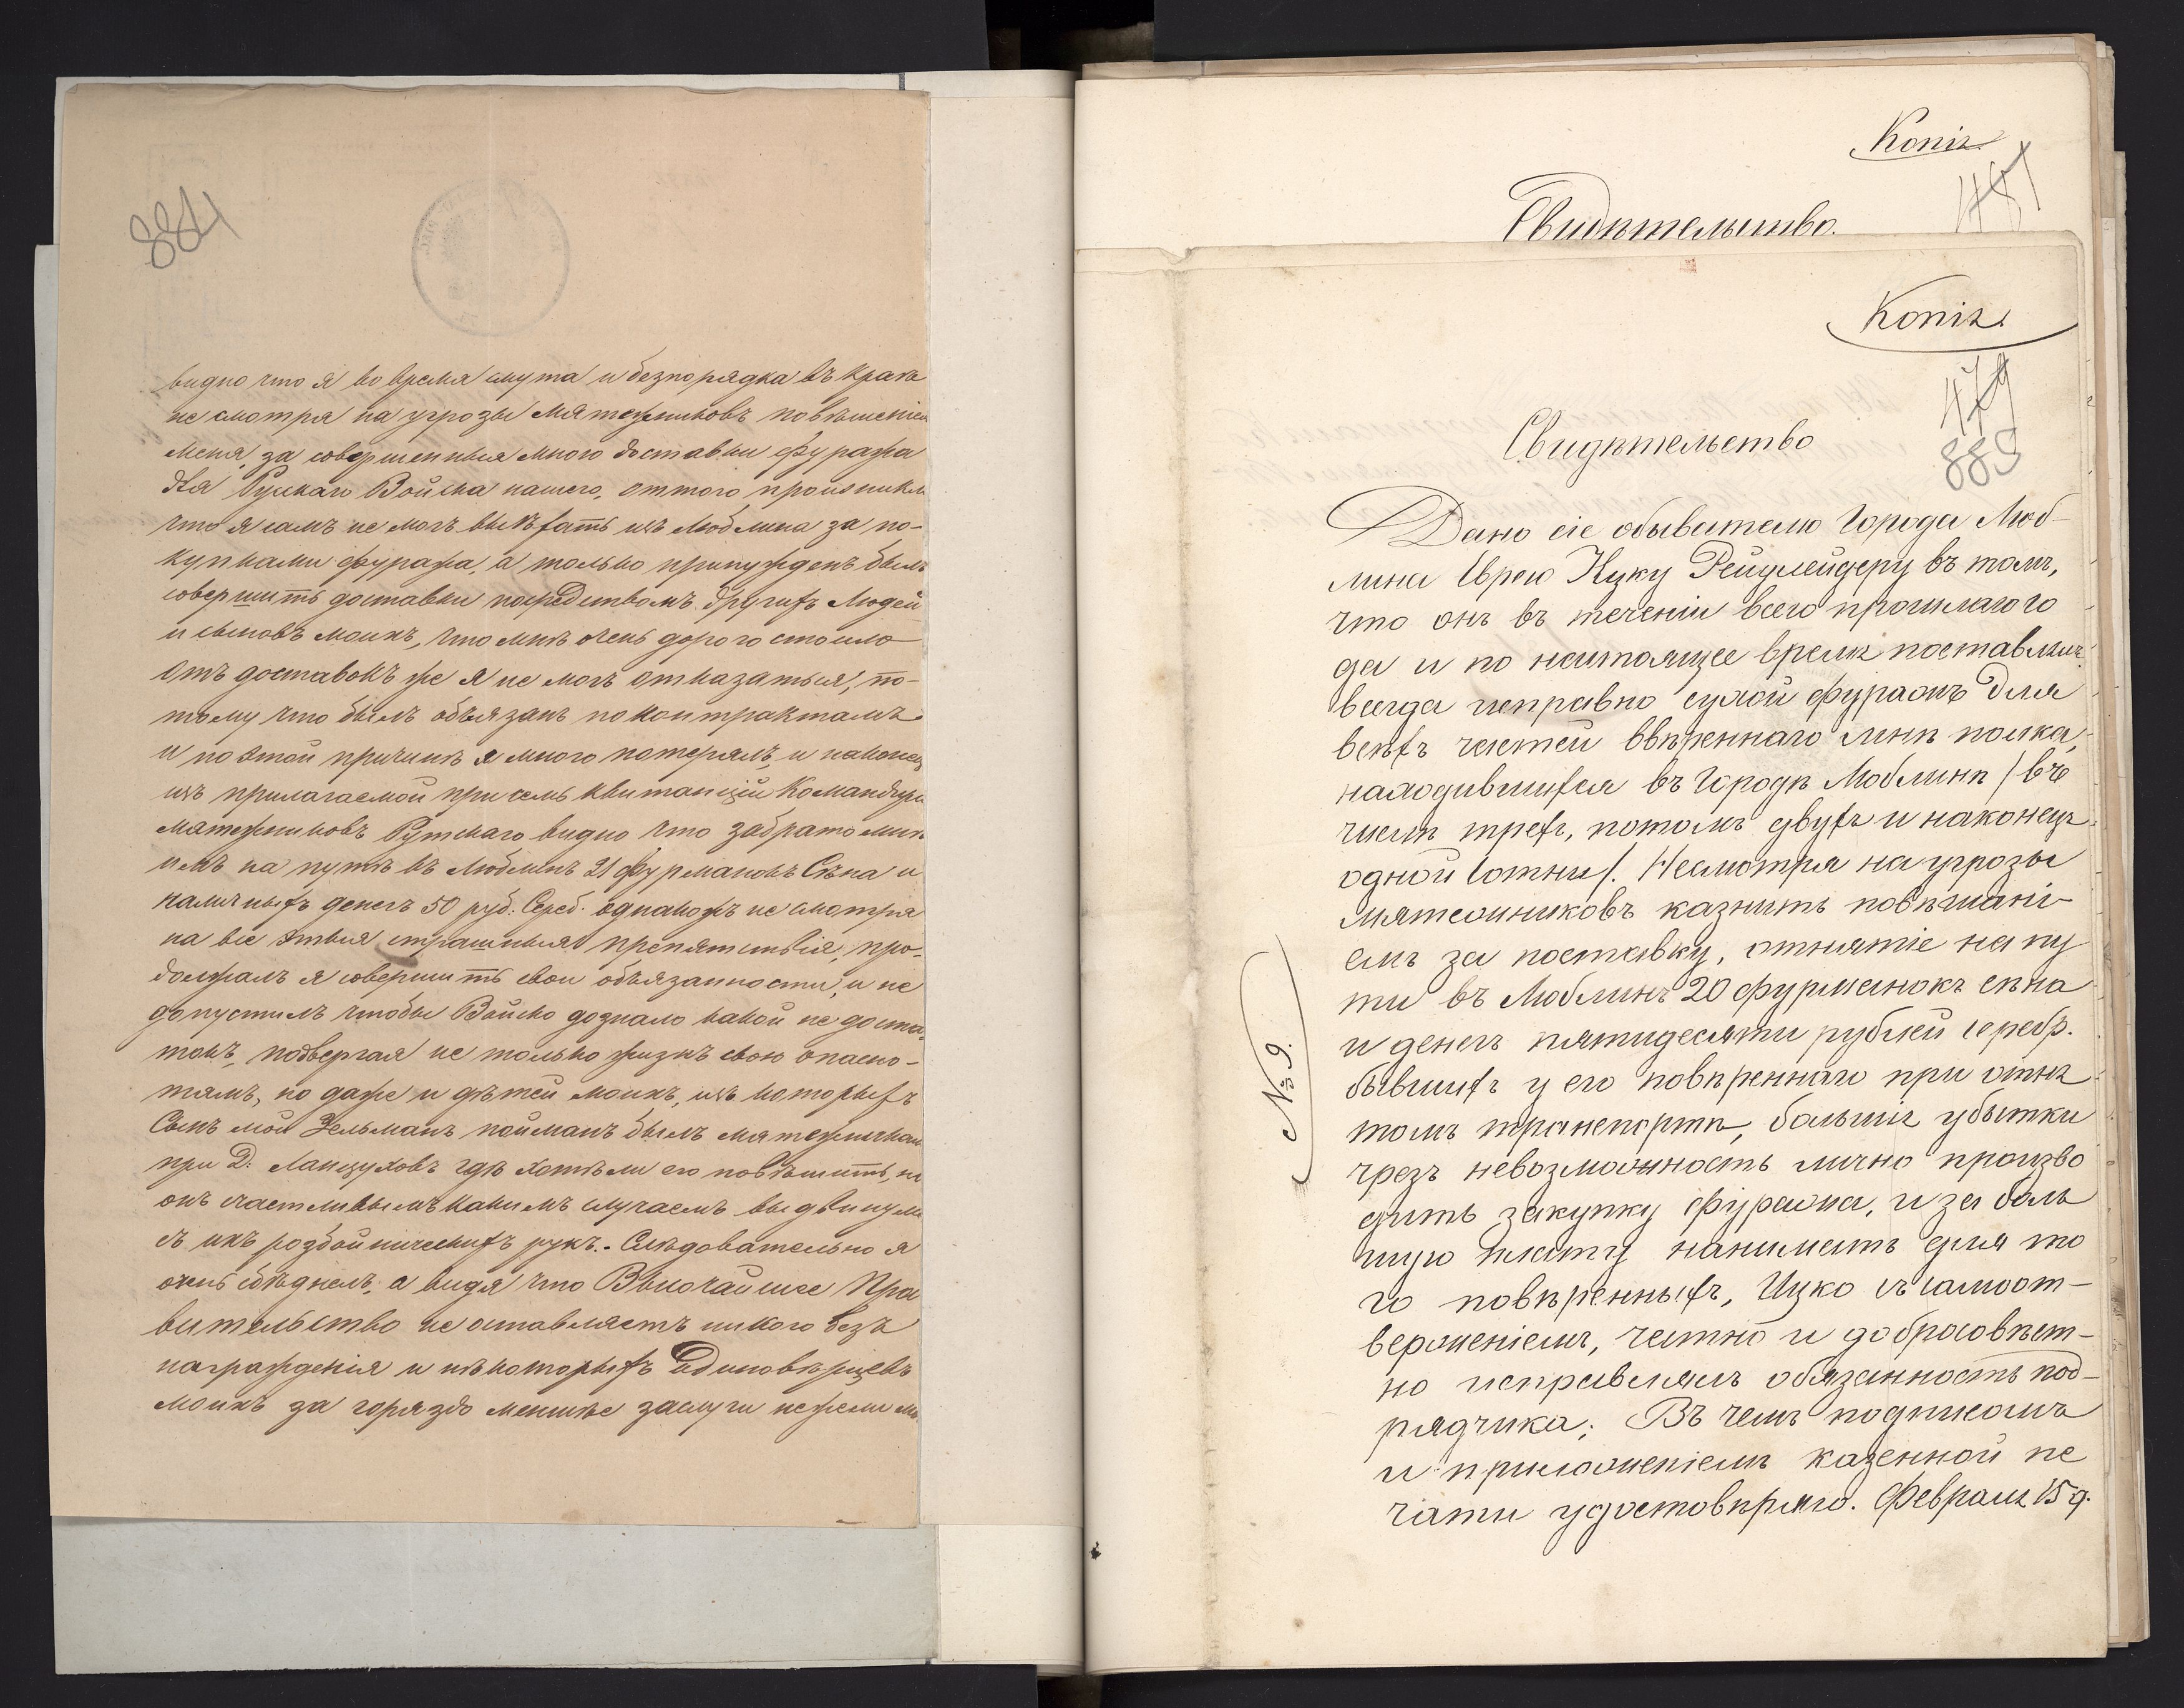 884
видно что я во время смута и безпорядка въ краѣ
не смотря на угрозы Мятежниковъ повѣшеніемъ
меня, за совершенныя много доставки фуража
для Рускаго Войска нашего, оттого произникло
что я самъ не могъ выѣхать изъ Люблина за по-
купками фуража, а только принужденъ былъ
совершить доставки посредствомъ другихъ Людей
и сыновъ моихъ, что мнѣ очень дорого стоило
отъ доставокъ же я не могъ отказаться, по-
тому что былъ обязанъ по контрактамъ
и по этой причинѣ я много потерялъ, и наконец
изъ прилагаемой при семъ квитанціи Командира
мятежниковъ Рутскаго видно что забрато мнѣ
имъ на путѣ въ Люблинъ 21 фурманокъ Сѣна и
наличныхъ денегъ 50 руб: Сереб. однакожъ не смотря
на все этыя страшныя препятствія, про-
должалъ я совершить свои обязанности, и не
допустилъ чтобы Войско дознало какой недоста
токъ, подвергая не только жизнь свою опасно-
тямъ, но даже и дѣтей моихъ, изъ которыхъ
Сынъ мой Зельманъ пойманъ былъ мятежникам
при Д: Ланцуховъ гдѣ хотѣли его повѣшить, но
онъ счастливымъ какимъ случаемъ выдвинул
съ ихъ розбойническихъ рукъ. - Слѣдовательно я
очень обѣднелъ, а видя что Высочайшее Пра
вительство не оставляетъ никого безъ
награжденія и нѣкоторыхъ Единовѣрцевъ
моихъ за гораздо меншѣе заслуги нежели мо
Копія
481
Свидѣтельство.
Копія
479
885
Свидѣтельство
Дано сіе обывателю Города Люб-
лина Еврею Ицку Рейцлейдеру въ томъ,
что онъ въ теченіи всего прошлаго го
да и по настоящее время поставлялъ
всегда исправно сухой фуражъ для
всѣхъ частей ввѣреннаго мнѣ полка,
находившихся въ Городѣ Люблинѣ /въ
числѣ трехъ, потомъ двухъ и наконецъ
одной Сотни/. Несмотря на угрозы
мятежниковъ казнить повѣшані-
емъ за поставку, отнятіе на пу
ти въ Люблинъ 20 фурманокъ сѣна
и денегъ пятидесяти рублей серебр.
бывшихъ у его повѣреннаго при отня
томъ транспортѣ, большія убытки
чрезъ невозможность лично произво
дить закупку фуража, и за боль
шую плату нанимать для то
го повѣренныхъ, Ицко съ самоот-
верженіемъ, честно и добросовѣст-
но исправлялъ обязанность под-
рядчика; Въ чемъ подписомъ
и приложеніемъ казенной пе
чати удостовѣряю. Февраля 15 д.
№ 9.